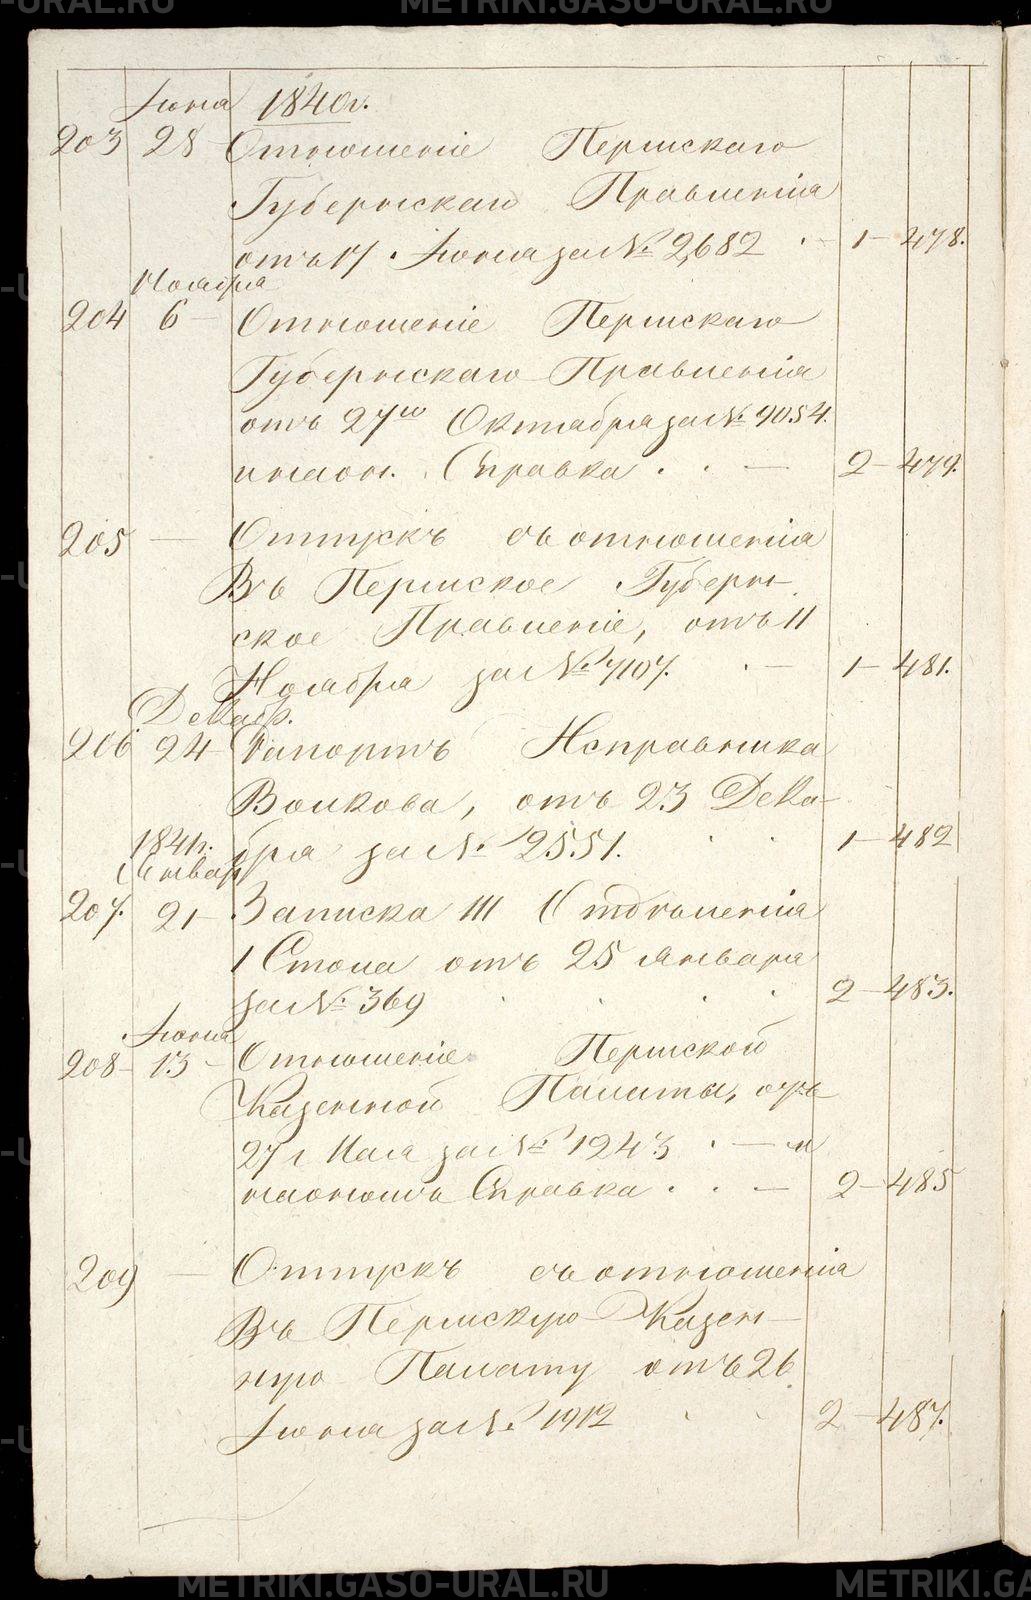 METRIKI.GASO-URAL.RU
Іюня 1840 г.
203 28 Отношеніе Пермскаго
Губернскаго Правленія
отъ 17 Іюня за № 2,682 1 — 478.
Ноября
204 6 — Отношеніе Пермскаго
Губернскаго Правленія
отъ 27го Октября за № 9054.
и на он. Справка . . — 2 — 479.
205 — Отпускъ съ отношенія
Въ Пермское Губерн-
ское Правленіе, отъ 11
Ноября за № 7107. . — 1 — 481.
Декабр.
206 24 — Рапортъ Исправника
Волкова, отъ 23 Дека-
бря за № 2551. . . 1 — 482
1841 г.
Январ
207. 21 — Записка III Отдѣленія
1 Стола отъ 25 Января
за № 369 . . . 2 — 483.
Іюня
208 — 13 — Отношеніе Пермской
Казенной Палаты, отъ
27 г Мая за № 1243 . — и
на оное Справка . . — 2 — 485
209 — Отпускъ съ отношенія
Въ Пермскую Казен-
ную Палату отъ 26
Іюня за № 1912 . . 2 — 487.
METRIKI.GASO-URAL.RU